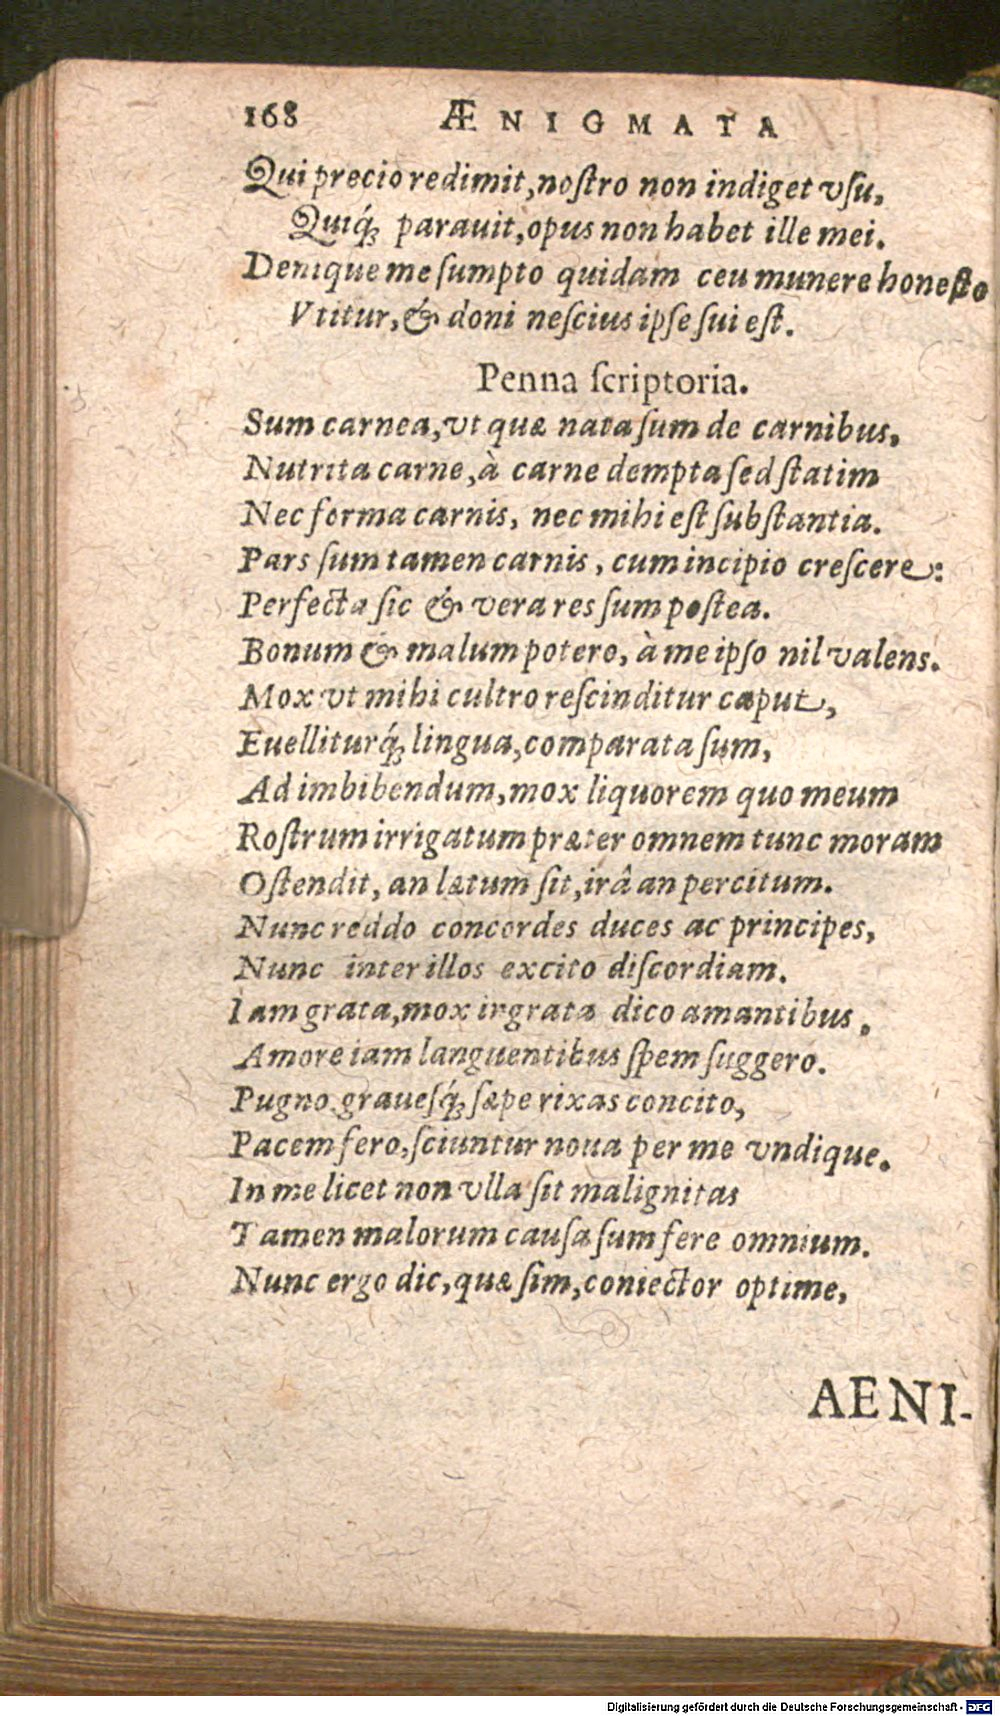 168 ÆNIGMATA
Qui precio redimit, noſtro non indiget vſu,
Quiq́; parauit, opus non habet ille mei.
Denique me ſumpto quidam ceu munere honeſto
Vtitur, & doni neſcius ipſe ſui eſt.
Penna ſcriptoria.
Sum carnea, vt quæ nata ſum de carnibus,
Nutrita carne, à carne dempta ſed ſtatim
Nec forma carnis, nec mihi eſt ſubſtantia.
Pars ſum tamen carnis, cum incipio creſcere:
Perfecta ſic & vera res ſum poſtea.
Bonum & malum potero, à me ipſo nil valens.
Mox vt mihi cultro reſcinditur caput,
Euelliturq́; lingua, comparata ſum,
Ad imbibendum, mox liquorem quo meum
Roſtrum irrigatum præter omnem tunc moram
Oſtendit, an lætum ſit, irâ an percitum.
Nunc reddo concordes duces ac principes,
Nunc inter illos excito diſcordiam.
Iam grata, mox ingrata dico amantibus.
Amore iam languentibus ſpem ſuggero.
Pugno graueſq́; ſæpe rixas concito,
Pacem fero, ſciuntur noua per me vndique.
In me licet non vlla ſit malignitas
Tamen malorum cauſa ſum fere omnium.
Nunc ergo dic, quæ ſim, coniector optime,
AENI-
Digitalisierung gefördert durch die Deutsche Forschungsgemeinschaft - DFG